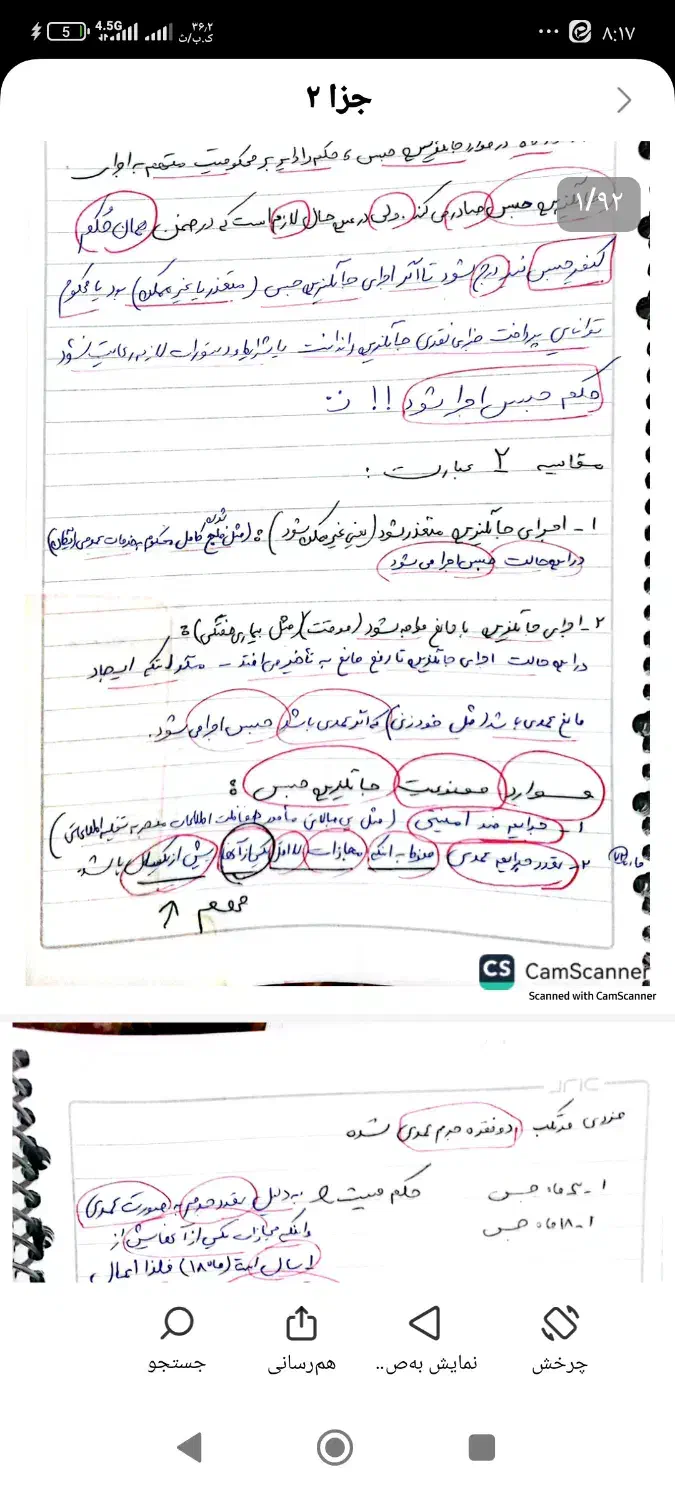 ۸:۱۷
۳۶٫۲
ک.ب/ث
4.5G
5
جزا ۲
۱/۹۲
جایگزین حبس، حکم دایر بر محکومیت متهم به اجرای
جایگزین حبس صادر می کند. ولی در عین حال لازم است که در ضمن همان حکم
کیفر حبس نیز درج شود تا اگر اجرای جایگزین حبس (متعذر یا غیر ممکن) بود یا محکوم
توانایی پرداخت جزای نقدی جایگزین را نداشت یا شرایط و دستورات لازم رعایت نشود
حکم حبس اجرا شود !!
مقایسه ۲ عبارت :
۱- اجرای جایگزین متعذر شود (یعنی غیر ممکن شود) : (مثل فلج شدن کامل محکوم به خدمات عمومی رایگان)
در این حالت حبس اجرا می شود
۲- اجرای جایگزین با مانع مواجه شود (موقت) (مثل بیماری هفتگی) :
در این حالت اجرای جایگزین تا رفع مانع به تأخیر می افتد - مگر اینکه ایجاد
مانع عمدی باشد (مثل خودزنی) که اگر عمدی باشد حبس اجرا می شود.
موارد ممنوعیت جایگزین حبس :
۱- جرایم ضد امنیتی (مثل بی مبالاتی مأمور حفاظت اطلاعات منجر به تخلیه اطلاعاتی)
ماده ۷۲ ۲- تعدد جرایم عمدی مجازات یکی از آنها بیش از یکسال باشد
مهم
CS CamScanner
Scanned with CamScanner
فردی مرتکب (دو فقره جرم عمدی) شده
۱- ۱۸ ماه حبس
حکم چیست؟ به دلیل تعدد جرم به صورت عمدی
و اینکه مجازات یکی از آنها بیش از
۱ سال است (۱۸ ماه) فلذا اعمال
چرخش
نمایش به‌ص..
هم‌رسانی
جستجو